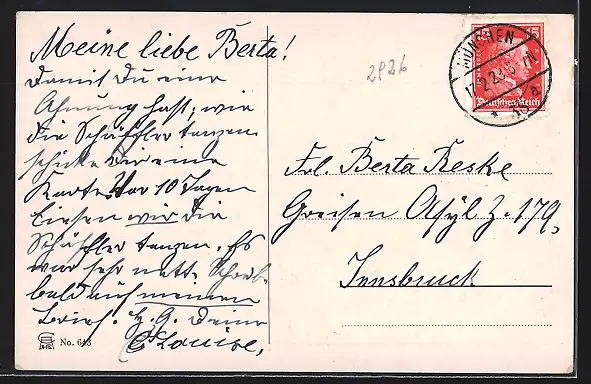 Meine liebe Berta!
Damit Du eine
Ahnung hast, wie
die Schäffler tanzen
schicke Dir eine
Karte. Vor 10 Tagen
liesen wir die
Schäffler tanzen. Es
war sehr nett. Schreib
bald auf meinen
Brief. H. G. Deine
Louise.
No. 643
2926
MÜNCHEN
15
Deutsches Reich
Frl. Berta Reske
Greisen Asyl Z. 179,
Innsbruck